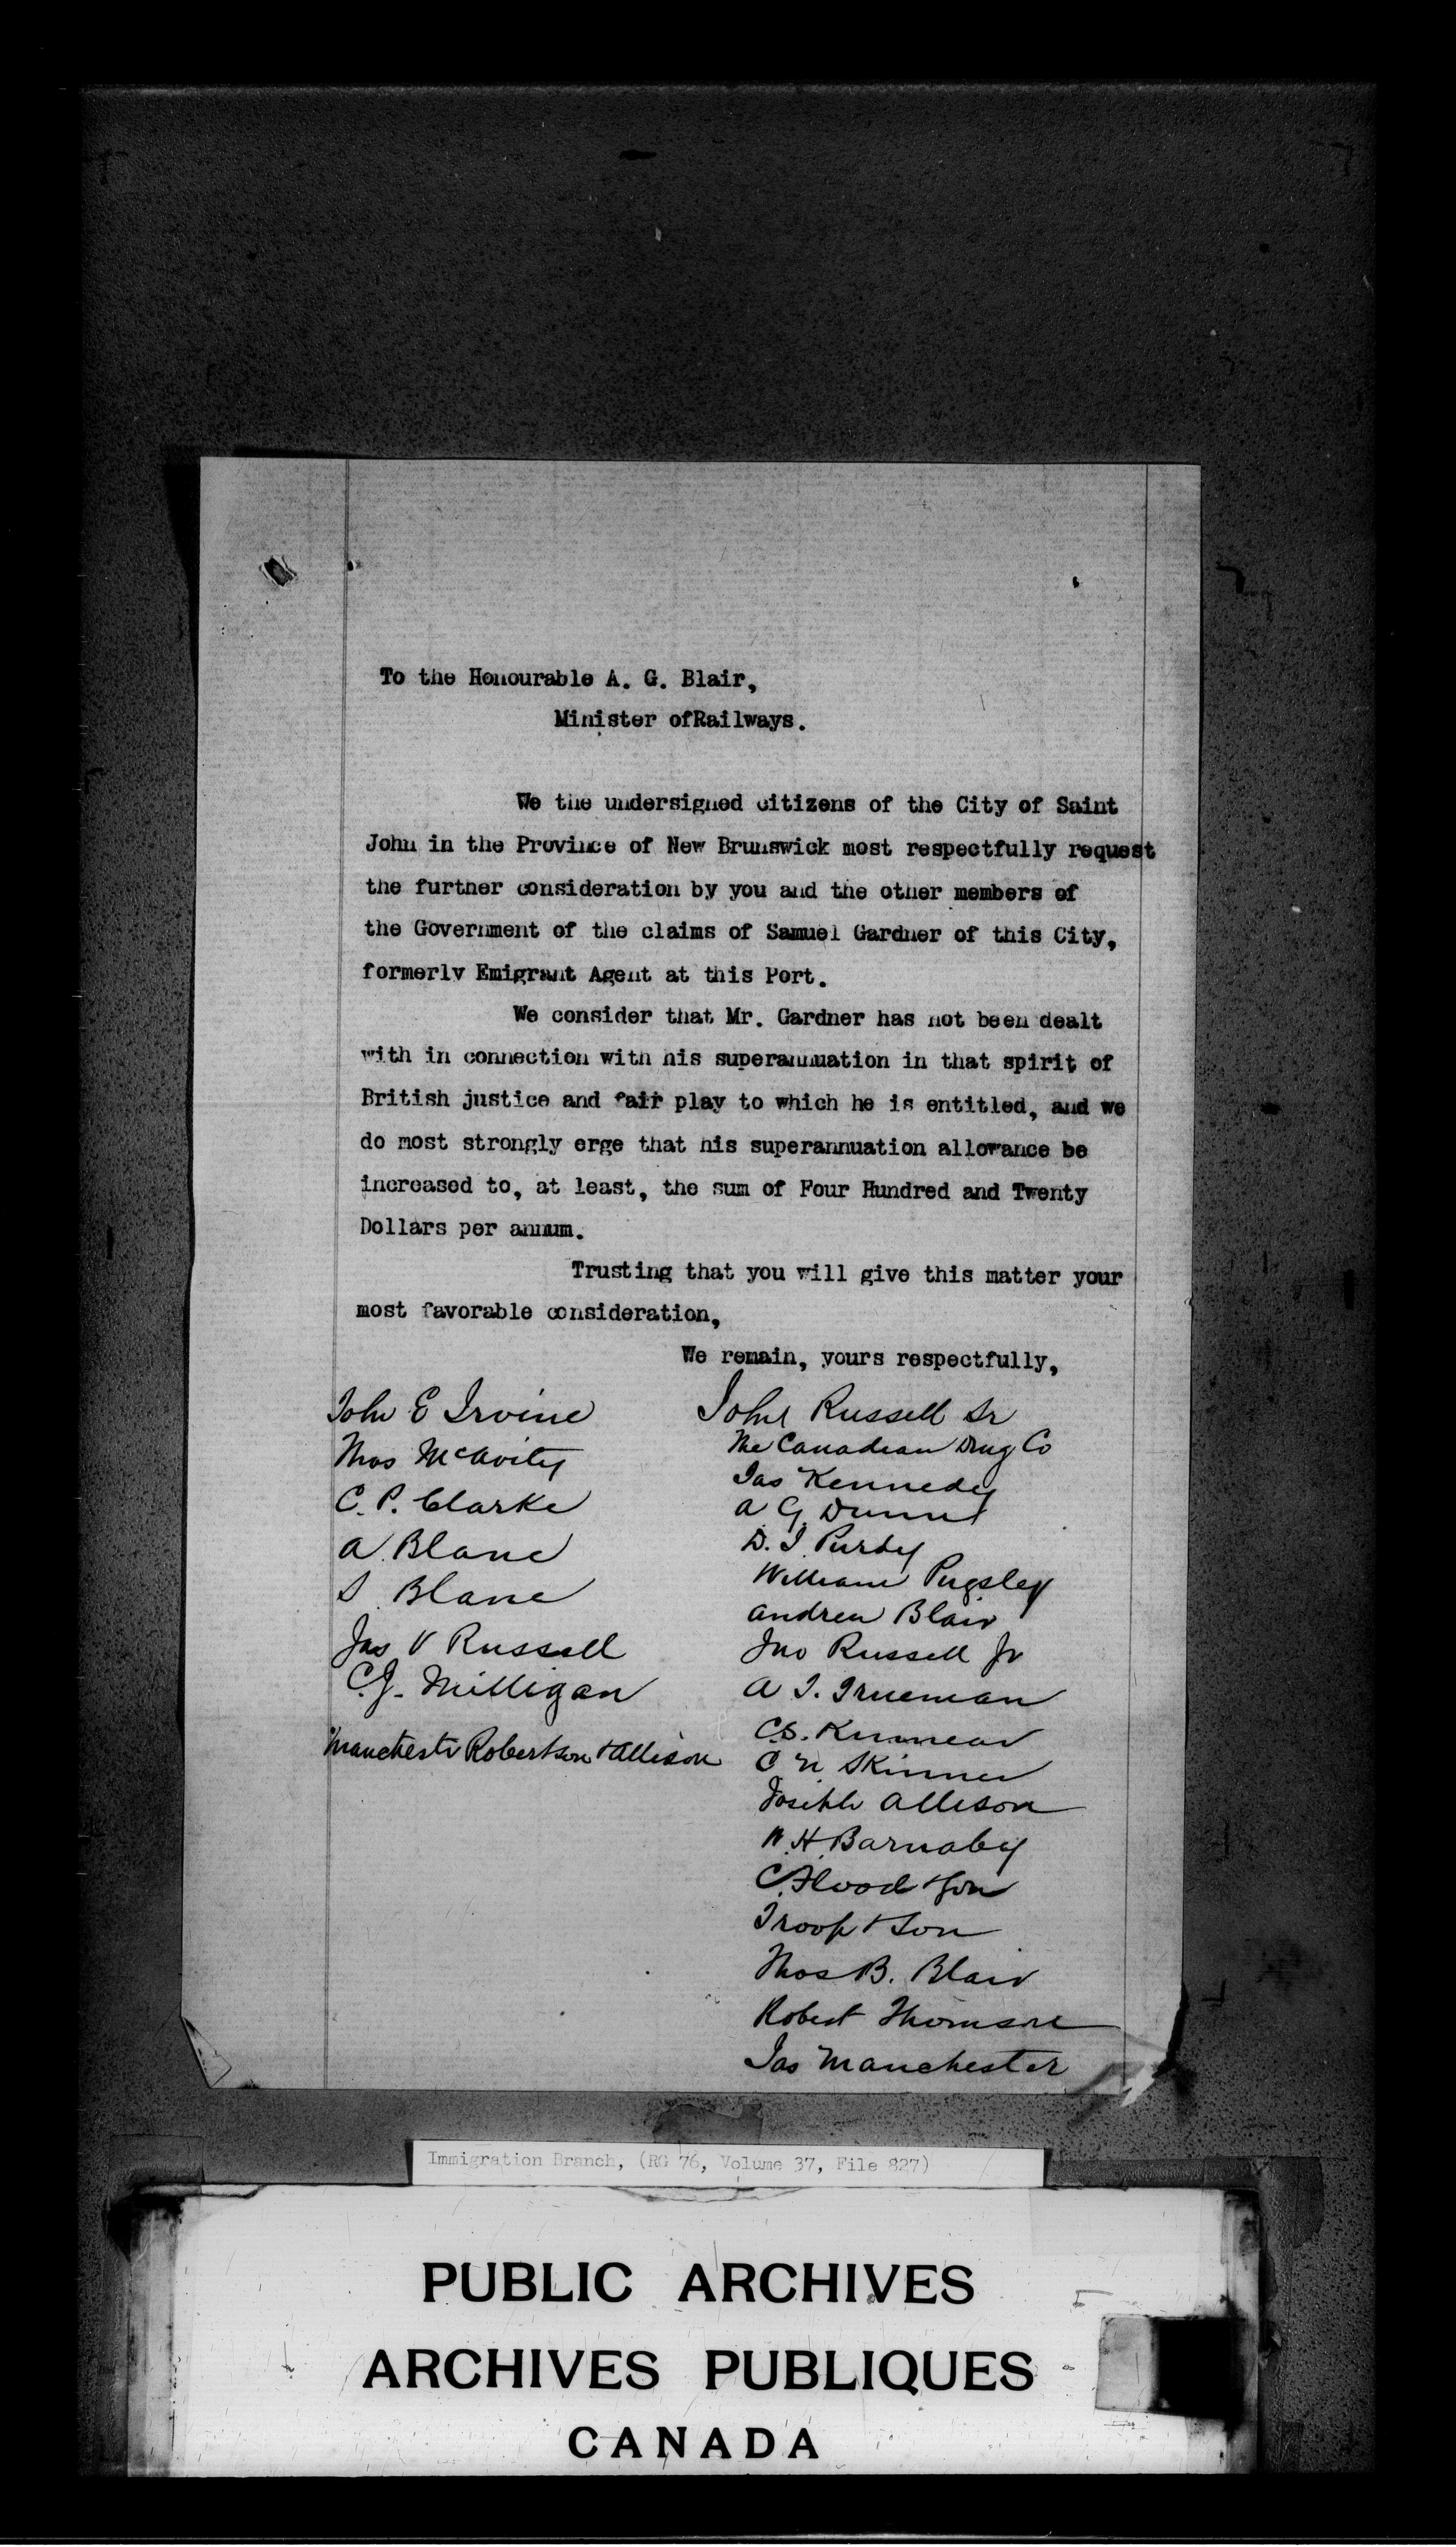 To the Honourable A. G. Blair,
Minister ofRailways.
We the undersigned citizens of the City of Saint
John in the Province of New Brunswick most respectfully request
the further consideration by you and the other members of
the Government of the claims of Samuel Gardner of this City,
formerly Emigrant Agent at this Port.
We consider that Mr. Gardner has not been dealt
with in connection with his superannuation in that spirit of
British justice and fair play to which he is entitled, and we
do most strongly erge that his superannuation allowance be
increased to, at least, the sum of Four Hundred and Twenty
Dollars per annum.
Trusting that you will give this matter your
most favorable consideration,
We remain, yours respectfully,
John E Irvine
Thos McAvity
C. P. Clarke
A. Blane
S Blane
Jas V Russell
C. J. Milligan
Manchester Robertson & Allison
John Russell Sr
The Canadian Drug Co
Jas Kennedy
A G Dunn
D. J. Purdy
William Pugsley
Andrew Blair
Jno Russell Jr
A I. Trueman
C.S. Kinnear
C N Skinner
Joseph Allison
W. H. Barnaby
C. Flood & Son
Troop & Son
Thos B. Blair
Robert Thomson
Jas Manchester
Immigration Branch, (RG 76, Volume 37, File 827)
PUBLIC ARCHIVES
ARCHIVES PUBLIQUES
CANADA